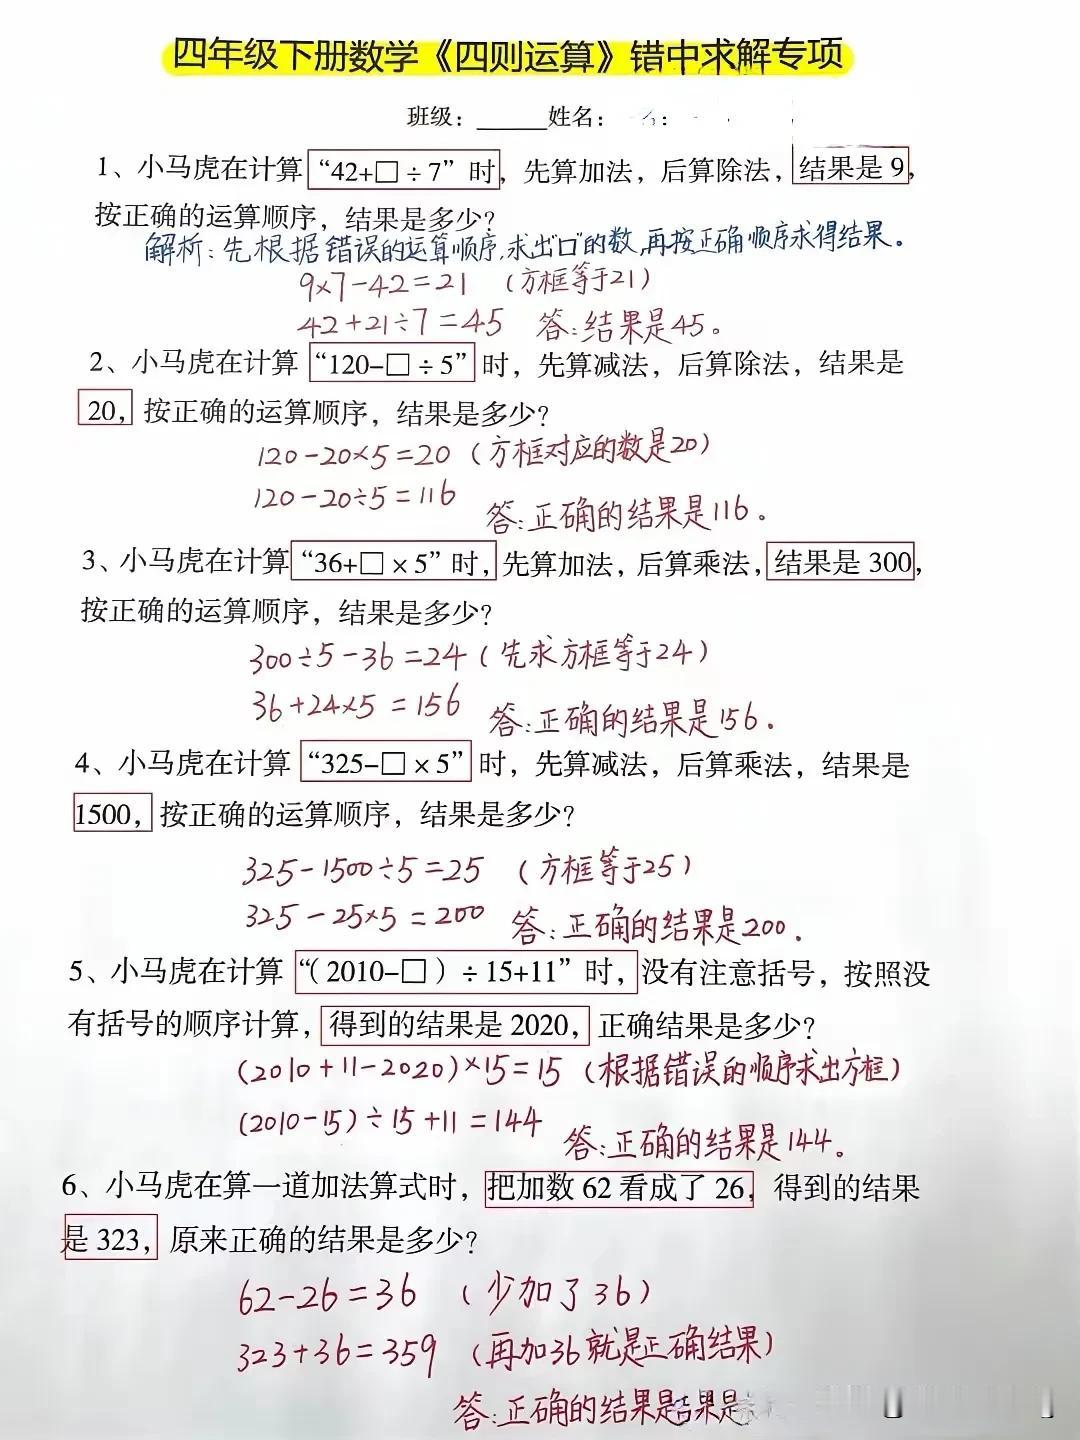 四年级下册数学《四则运算》错中求解专项
班级：______姓名：
1、小马虎在计算“42+□÷7”时，先算加法，后算除法，结果是9，
按正确的运算顺序，结果是多少？
解析：先根据错误的运算顺序，求出“口”的数，再按正确顺序求得结果。
9×7-42=21 （方框等于21）
42+21÷7=45 答：结果是45。
2、小马虎在计算“120-□÷5”时，先算减法，后算除法，结果是
20，按正确的运算顺序，结果是多少？
120-20×5=20（方框对应的数是20）
120-20÷5=116
答：正确的结果是116。
3、小马虎在计算“36+□×5”时，先算加法，后算乘法，结果是300，
按正确的运算顺序，结果是多少？
300÷5-36=24（先求方框等于24）
36+24×5=156
答：正确的结果是156.
4、小马虎在计算“325-□×5”时，先算减法，后算乘法，结果是
1500，按正确的运算顺序，结果是多少？
325-1500÷5=25 （方框等于25）
325-25×5=200 答：正确的结果是200.
5、小马虎在计算“（2010-□）÷15+11”时，没有注意括号，按照没
有括号的顺序计算，得到的结果是2020，正确结果是多少？
(2010+11-2020)×15=15（根据错误的顺序求出方框）
(2010-15)÷15+11=144
答：正确的结果是144。
6、小马虎在算一道加法算式时，把加数62看成了26，得到的结果
是323，原来正确的结果是多少？
62-26=36 （少加了36）
323+36=359 （再加36就是正确结果）
答：正确的结果是结果是